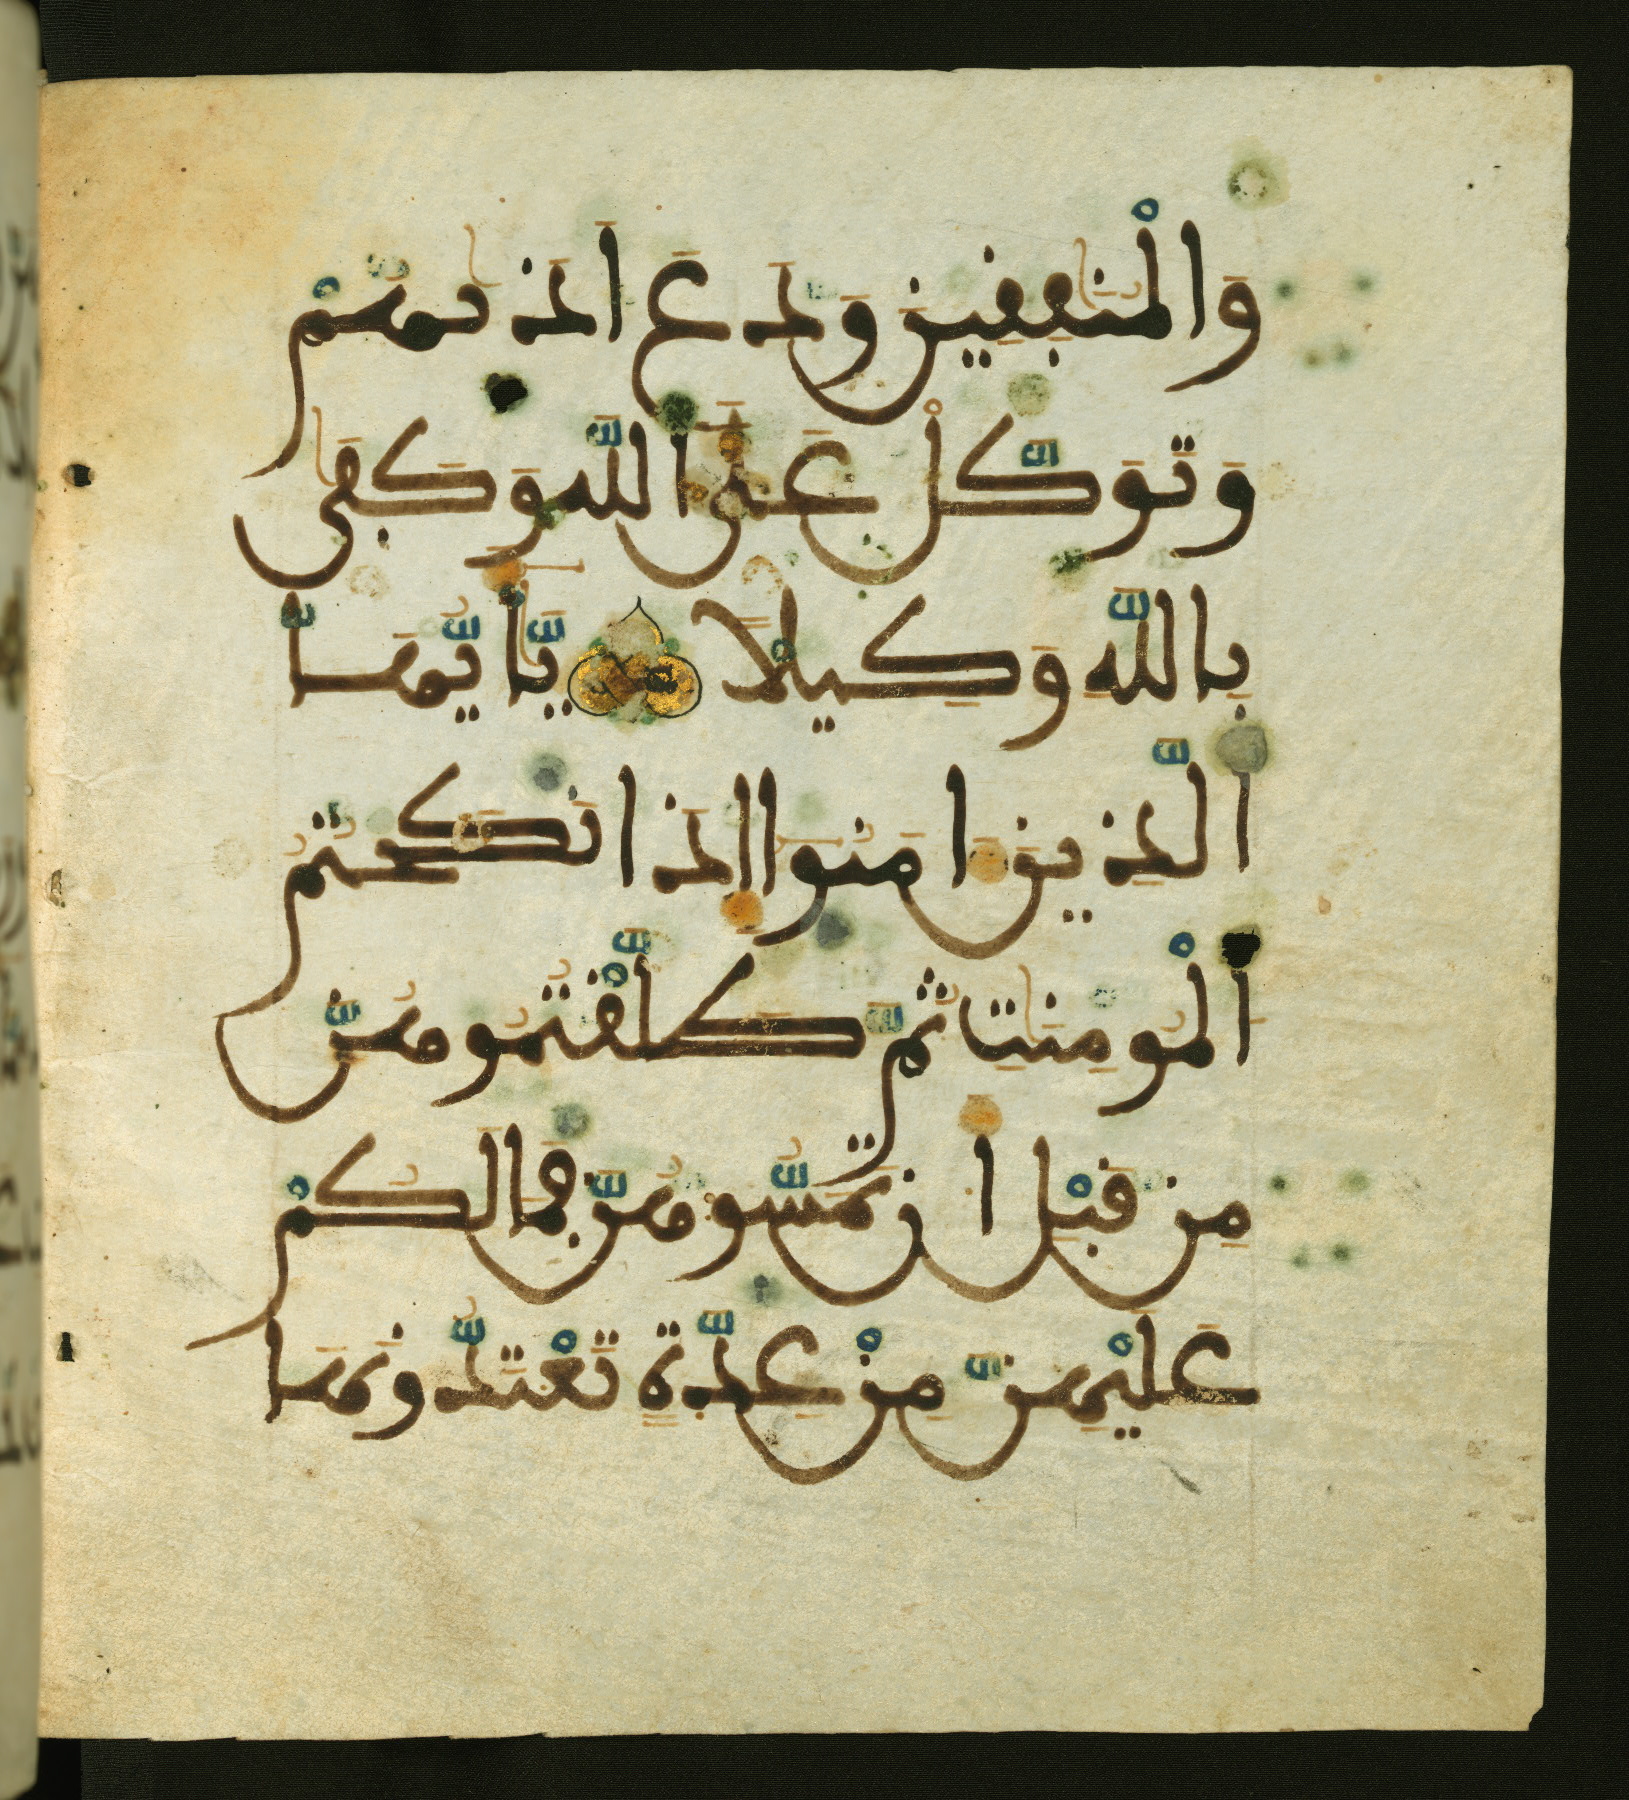 وَالْمُنَٰفِقِينَ وَدَعَ اَذَىٰهُمْ
وَتَوَكَّلْ عَلَى اللَّهِ وَكَفَىٰ
بِاللَّهِ وَكِيلًا يَٰأَيُّهَا
الَّذِينَ ءَامَنُوا إِذَا نَكَحْتُمُ
الْمُومِنَٰتِ ثُمَّ طَلَّقْتُمُوهُنَّ
مِن قَبْلِ أَن تَمَسُّوهُنَّ فَمَا لَكُمْ
عَلَيْهِنَّ مِنْ عِدَّةٍ تَعْتَدُّونَهَا